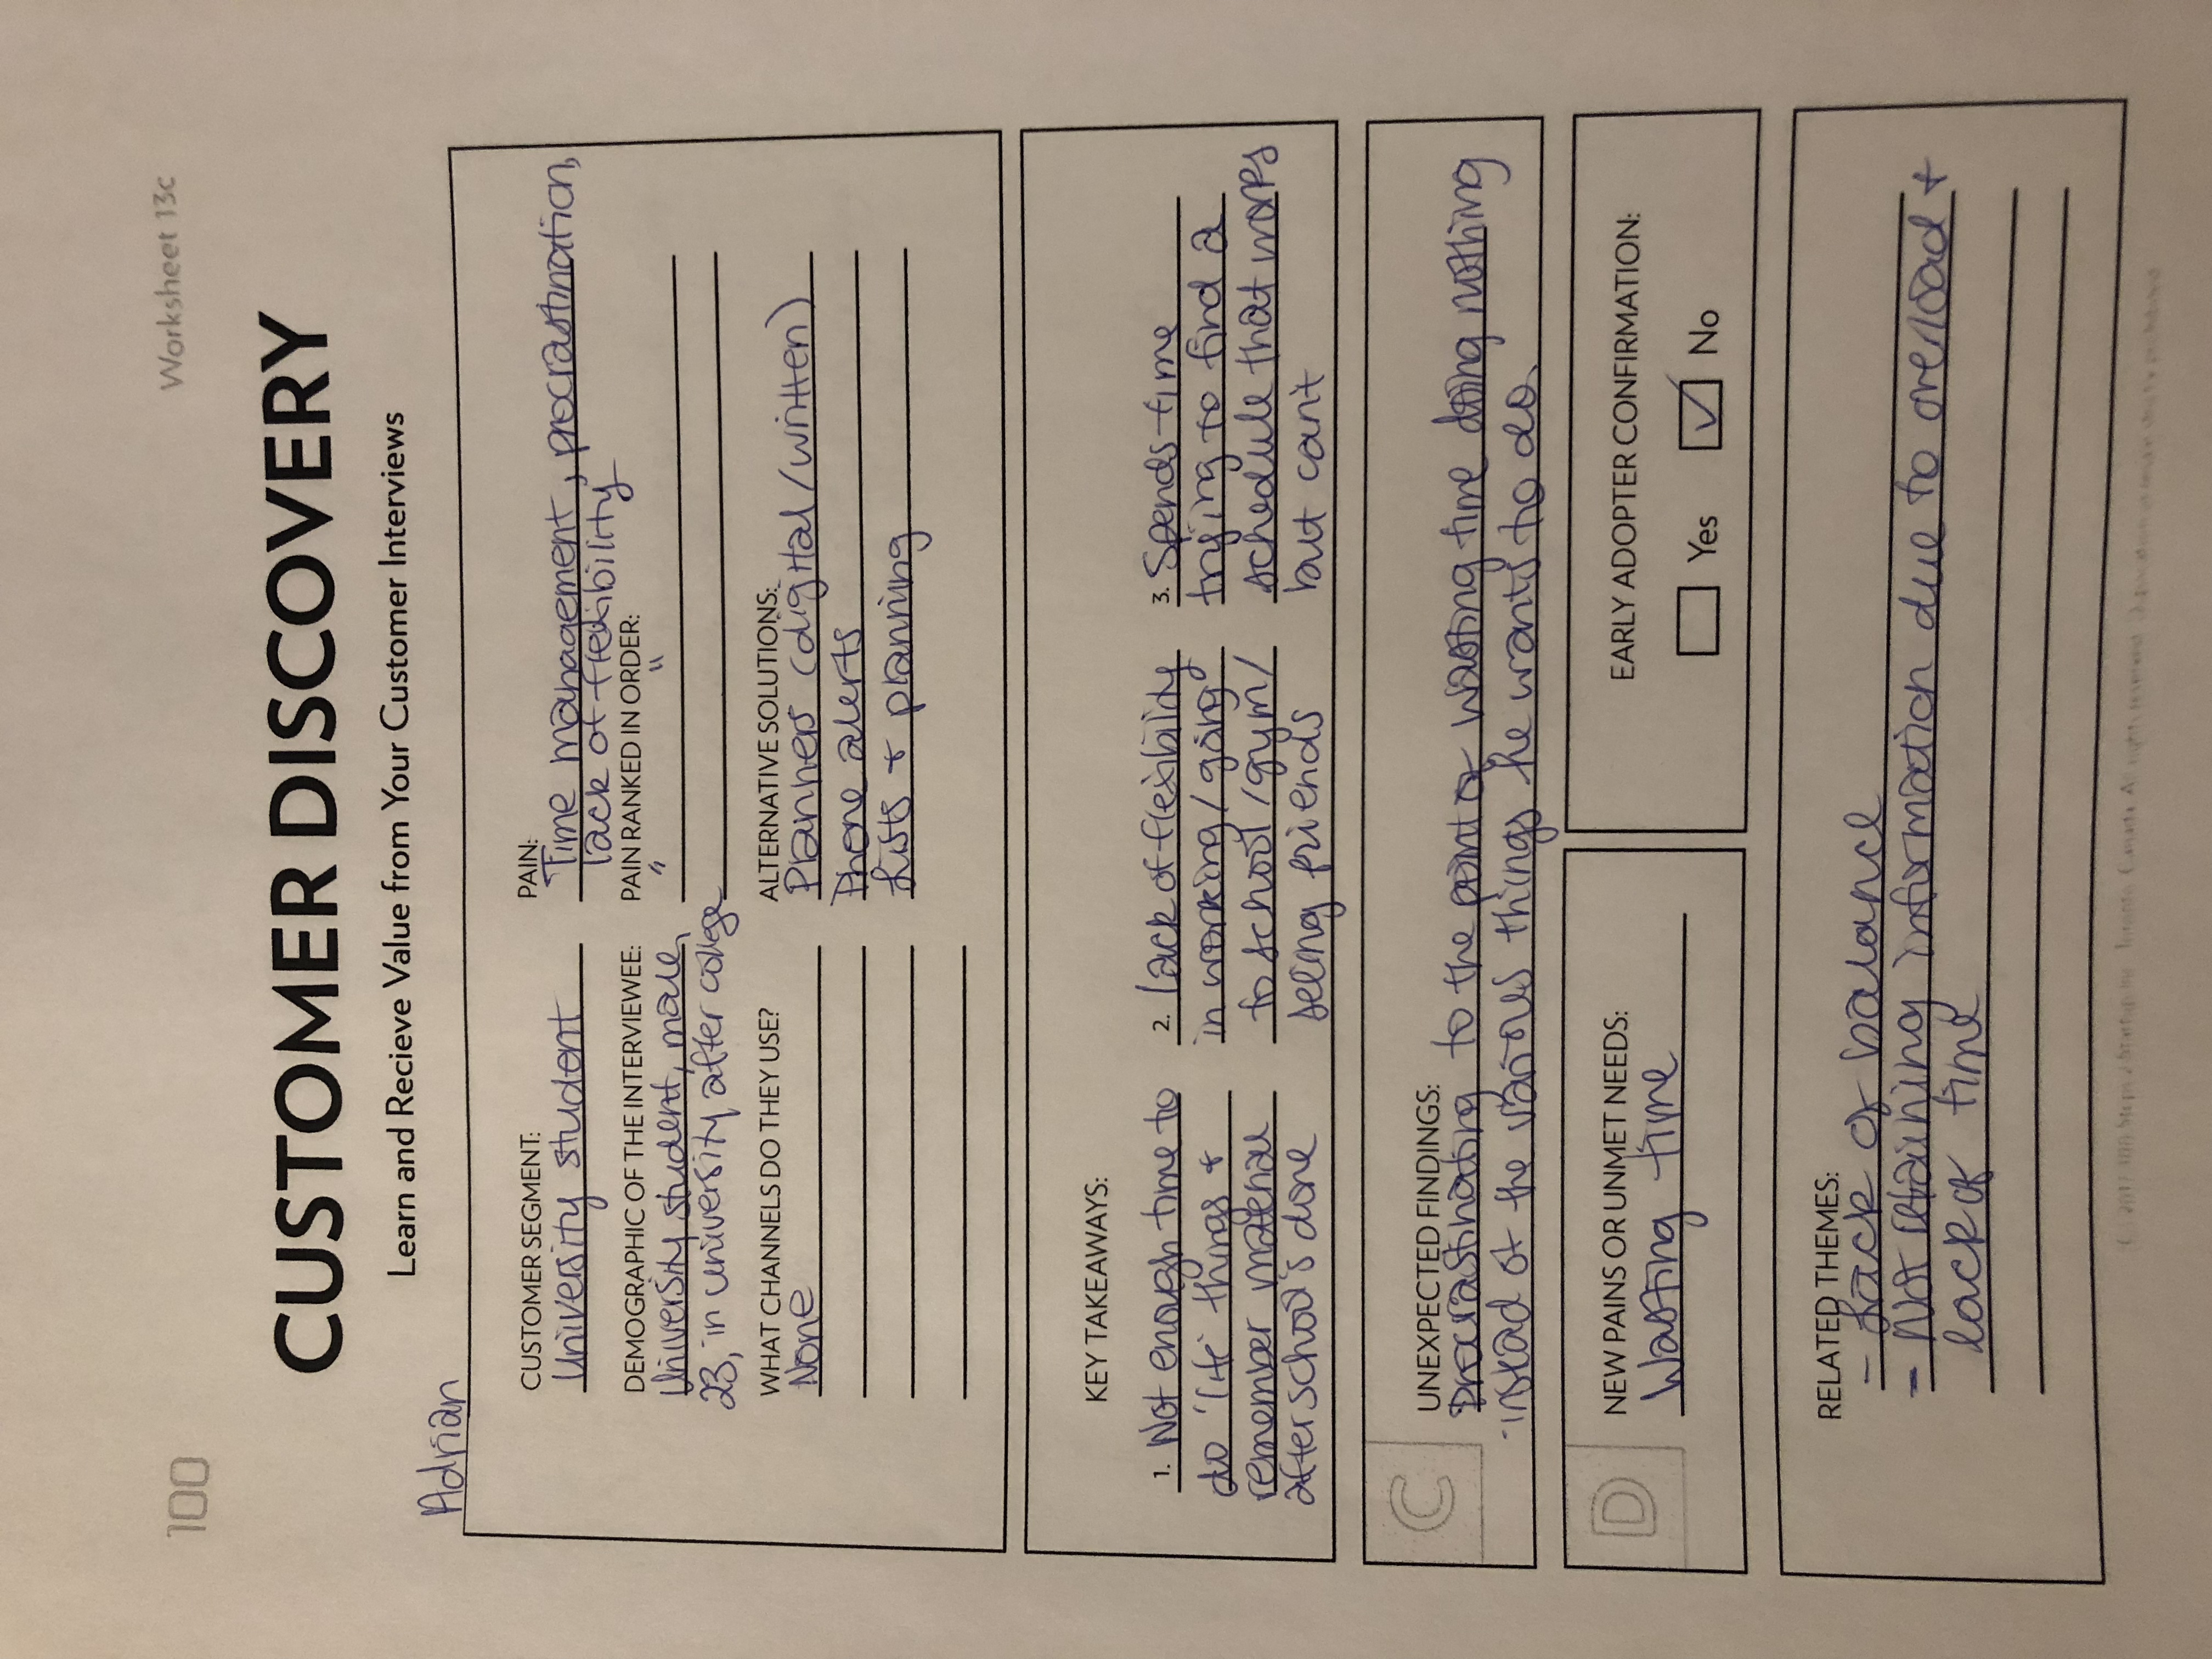 100
Worksheet 13c
CUSTOMER DISCOVERY
Learn and Recieve Value from Your Customer Interviews
Adrian
CUSTOMER SEGMENT:
University student
PAIN:
Time management, procrastination,
lack of flexibility
DEMOGRAPHIC OF THE INTERVIEWEE:
University student, male,
23, in university after college
PAIN RANKED IN ORDER:
" "
WHAT CHANNELS DO THEY USE?
None
ALTERNATIVE SOLUTIONS:
Planners (digital/written)
Phone alerts
Lists + planning
KEY TAKEAWAYS:
1. Not enough time to
do 'life' things +
remember material
after school's done
2. lack of flexibility
in working/going
to school/gym/
seeing friends
3. Spends time
trying to find a
schedule that works
but can't
C
UNEXPECTED FINDINGS:
Procrastinating to the point of wasting time doing nothing
instead of the various things he wants to do.
D
NEW PAINS OR UNMET NEEDS:
Wasting time
EARLY ADOPTER CONFIRMATION:
Yes No
RELATED THEMES:
- Lack of balance
- Not retaining information due to overload +
lack of time